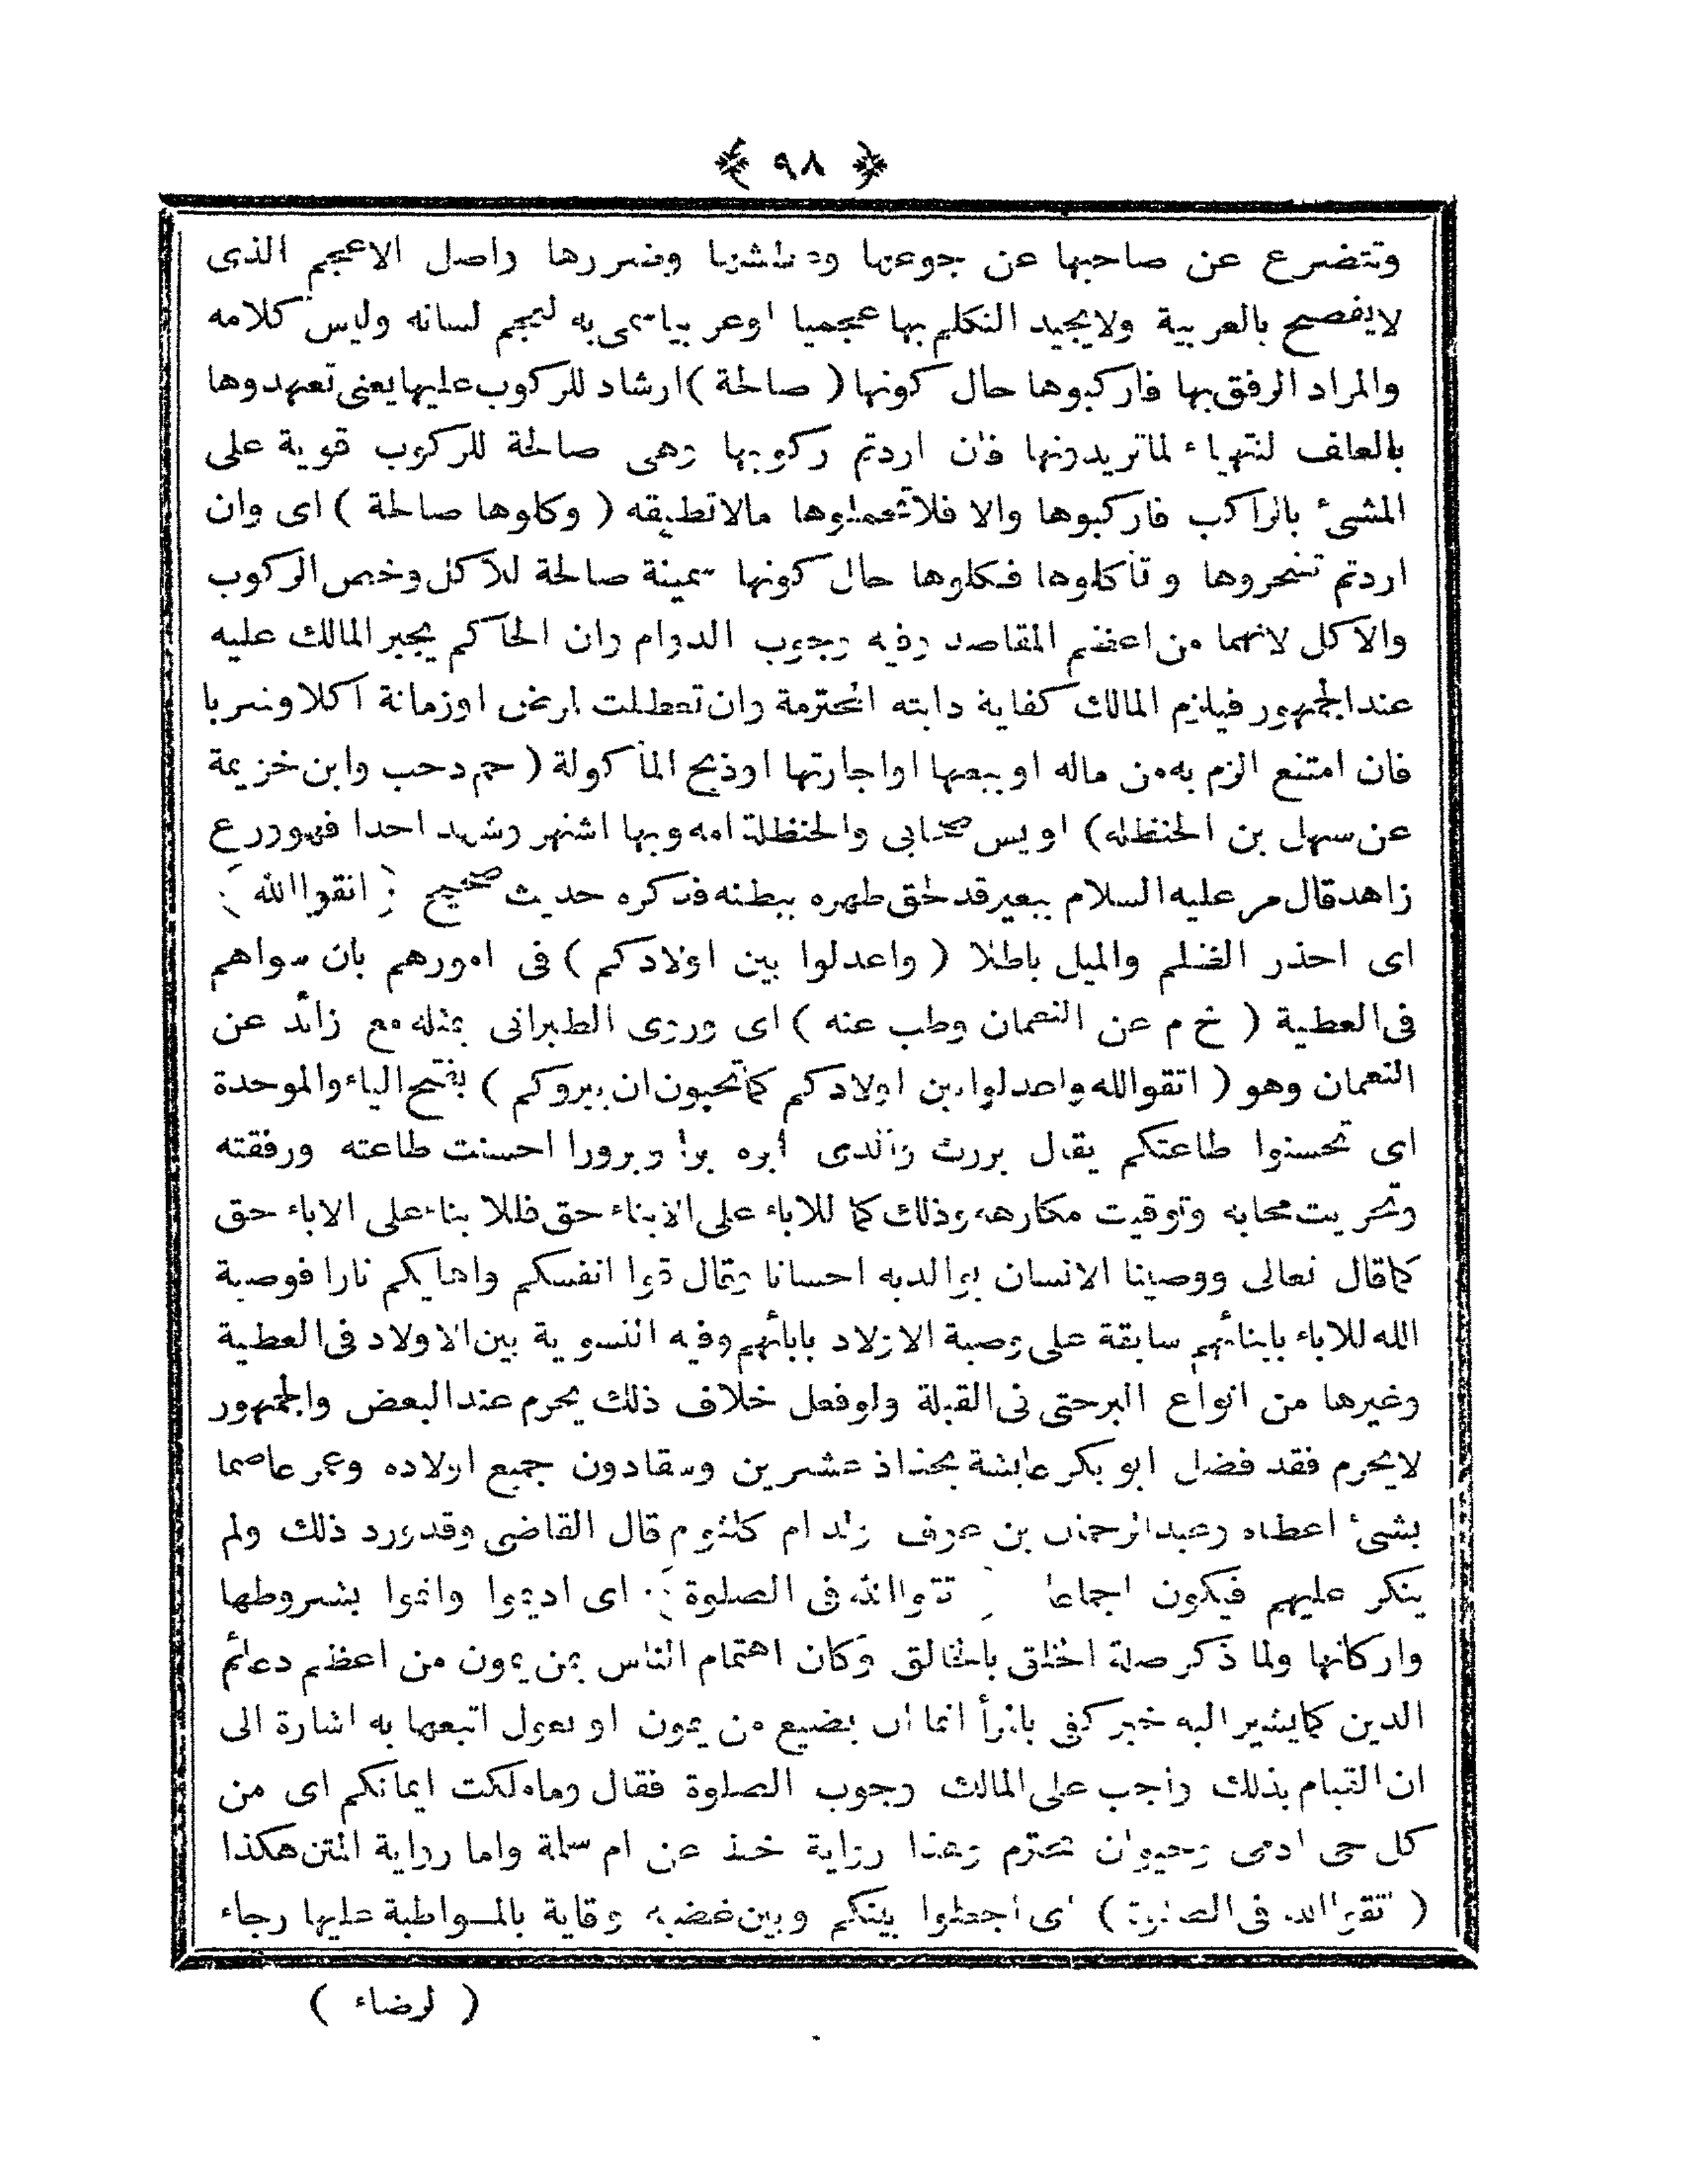 ﴿ ٩٨ ﴾
وتتضرع عن صاحبها عن جوعها وعطشها وضررها واصل الاعجم الذى
لايفصح بالعربية ولايجيد التكلم بها عجميا اوعربيا سمى به لتعجم لسانه وليس كلامه
والمراد الرفق بها فاركبوها حال كونها ( صالحة ) ارشاد للركوب عليها يعنى تعهدوها
بالعلف لتتهياء لماتريدونها فان اردتم ركوبها وهى صالحة للركوب قوية على
المشئ بالراكب فاركبوها والا فلاتحملوها مالاتطيقه ( وكلوها صالحة ) اى وان
اردتم تنحروها وتأكلوها فكلوها حال كونها سمينة صالحة للاكل وخص الركوب
والاكل لانهما من اعظم المقاصد وفيه وجوب الدوام وان الحاكم يجبر المالك عليه
عند الجمهور فيلزم المالك كفاية دابته المحترمة وان تعطلت لمرض اوزمانة اكلا وشربا
فان امتنع الزم به من ماله اوببيعها اواجارتها اوذبح المأكولة ( حم د حب وابن خزيمة
عن سهل بن الحنظله ) اويس صحابى والحنظلة امه وبها اشتهر وشهد احدا فهو ورع
زاهد قال مر عليه السلام ببعير قد لحق ظهره ببطنه فذكره حديث صحيح ( اتقوا الله )
اى احذر الظلم والميل باطلا ( واعدلوا بين اولادكم ) فى امورهم بان سواهم
فى العطية ( خ م عن النعمان وطب عنه ) اى وروى الطبرانى بمثله مع زائد عن
النعمان وهو ( اتقوالله واعدلوا بين اولادكم كماتحبون ان يبروكم ) بفتح الياء والموحدة
اى تحسنوا طاعتكم يقال بررت والدى ابره برا وبرورا احسنت طاعته ورفقته
وتحريت محابه وتوقيت مكارهه وذلك كما للاباء على الابناء حق فللابناء على الاباء حق
كماقال تعالى ووصينا الانسان بوالديه احسانا وقال قوا انفسكم واهليكم نارا فوصية
الله للاباء بابنائهم سابقة على وصية الاولاد بابائهم وفيه التسوية بين الاولاد فى العطية
وغيرها من انواع البر حتى فى القبلة ولوفعل خلاف ذلك يحرم عند البعض والجمهور
لايحرم فقد فضل ابوبكر عايشة بجذاذ عشرين وسقادون جميع اولاده وعمر عاصما
بشئ اعطاه وعبدالرحمن بن عوف ولد ام كلثوم قال القاضى وقدورد ذلك ولم
ينكر عليهم فيكون اجماعا ( تقوا الله فى الصلوة ) اى اديموا واتموا بشروطها
واركانها ولما ذكر صلة الخلق بالخالق وكان اهتمام الناس بمن يمون من اعظم دعائم
الدين كمايشير اليه خبر كفى بالمرأ اثما ان يضيع من يمون او يعول اتبعها به اشارة الى
ان القيام بذلك واجب على المالك وجوب الصلوة فقال وماملكت ايمانكم اى من
كل حى ادمى وحيوان محترم وهذا رواية خد عن ام سلمة واما رواية المتن هكذا
( تقوا الله فى الصلوة ) اى اجعلوا بينكم وبين غضبه وقاية بالمواظبة عليها رجاء
( لرضاء )